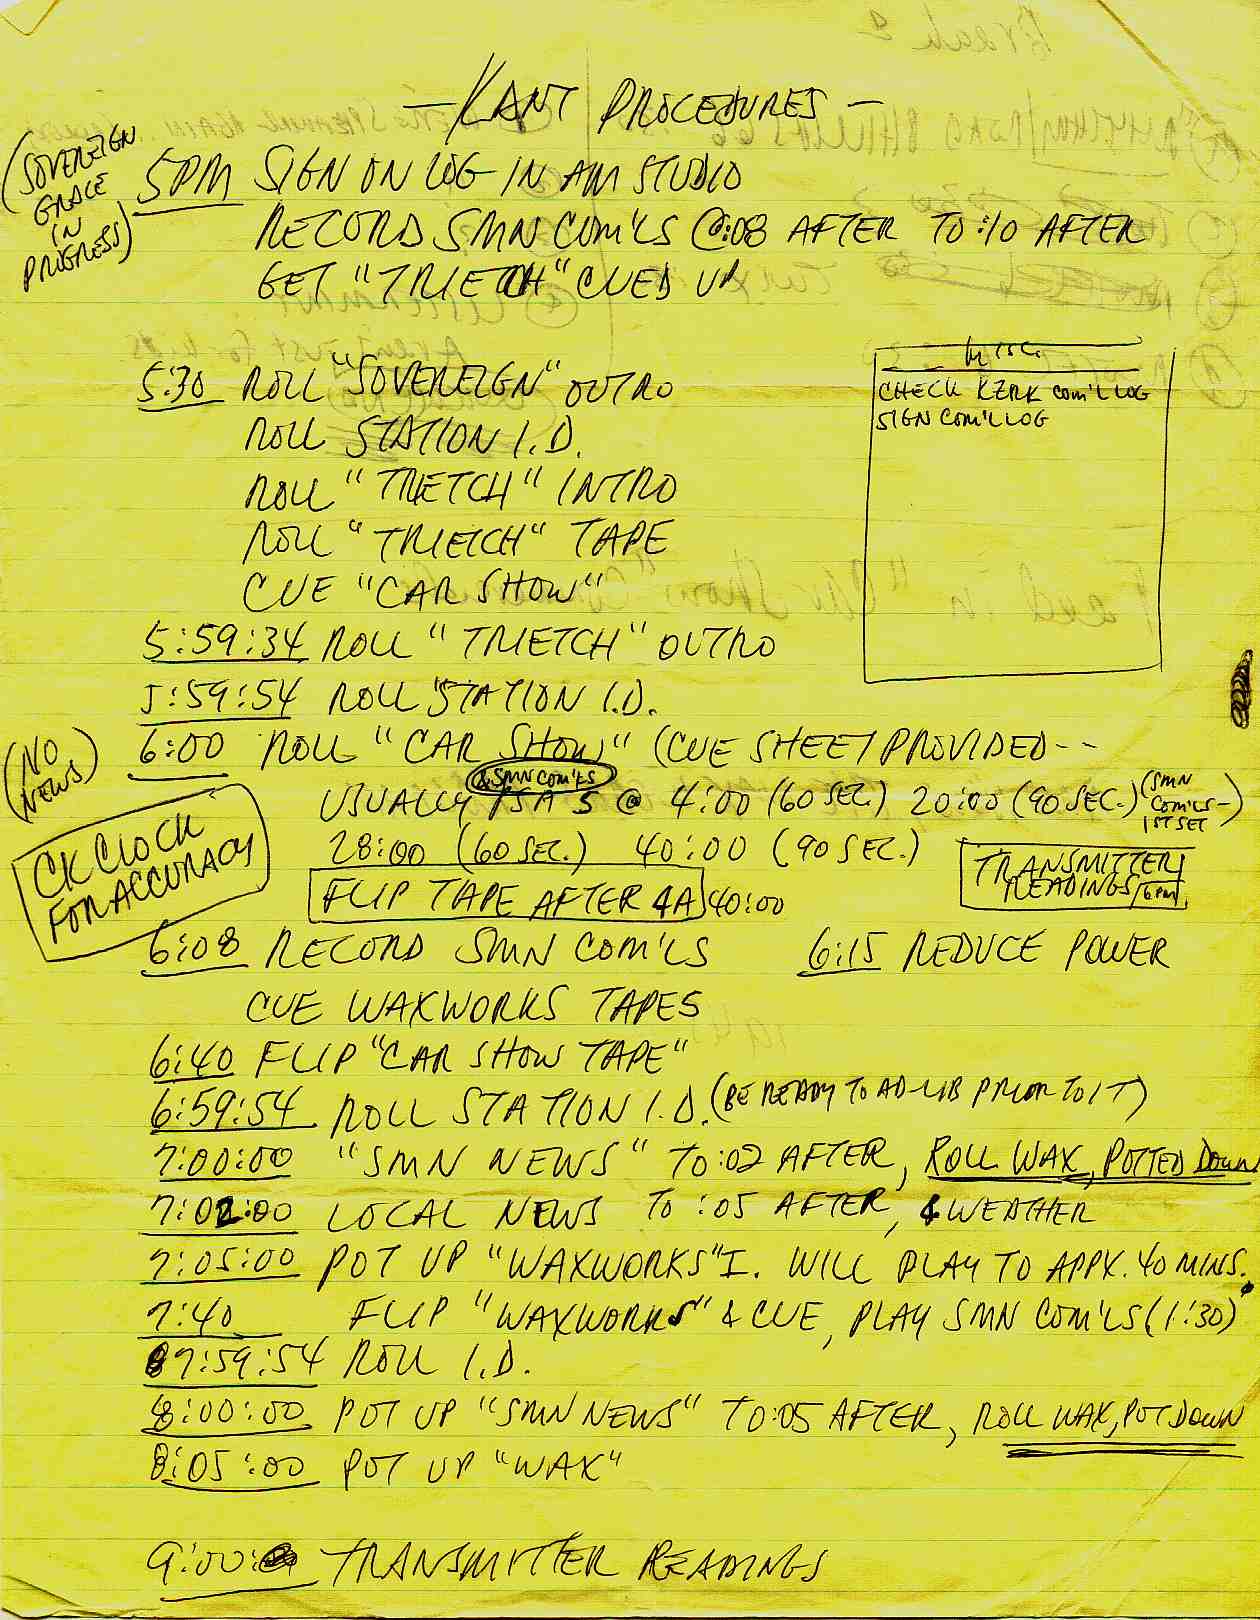 — KANT PROCEDURES —
(SOVEREIGN
GRACE
IN
PROGRESS)
5PM SIGN ON LOG IN AM STUDIO
RECORD SMN COM'LS @:08 AFTER TO :10 AFTER
GET "TRIETCH" CUED UP
MISC.
CHECK KZRK COM'L LOG
SIGN COM'L LOG
5:30 ROLL "SOVEREIGN" OUTRO
ROLL STATION I.D.
ROLL "TRIETCH" INTRO
ROLL "TRIETCH" TAPE
CUE "CAR SHOW"
5:59:34 ROLL "TRIETCH" OUTRO
5:59:54 ROLL STATION I.D.
(NO
NEWS)
6:00 ROLL "CAR SHOW" (CUE SHEET PROVIDED--
& SMN COM'LS
USUALLY PSA'S @ 4:00 (60 SEC.) 20:00 (90 SEC.) (SMN
COM'LS-
1ST SET)
28:00 (60 SEC.) 40:00 (90 SEC.)
CK CLOCK
FOR ACCURACY
FLIP TAPE AFTER 40:00
TRANSMITTER
READINGS/6PM
6:08 RECORD SMN COM'LS 6:15 REDUCE POWER
CUE WAXWORKS TAPES
6:40 FLIP "CAR SHOW TAPE"
6:59:54 ROLL STATION I.D. (BE READY TO AD-LIB PRIOR TO IT)
7:00:00 "SMN NEWS" TO :02 AFTER, ROLL WAX, POTTED DOWN
7:02:00 LOCAL NEWS TO :05 AFTER, & WEATHER
7:05:00 POT UP "WAXWORKS" I. WILL PLAY TO APPX. 40 MINS.
7:40 FLIP "WAXWORKS" & CUE, PLAY SMN COM'LS (1:30)
7:59:54 ROLL I.D.
8:00:00 POT UP "SMN NEWS" TO :05 AFTER, ROLL WAX, POT DOWN
8:05:00 POT UP "WAX"
9:00 TRANSMITTER READINGS